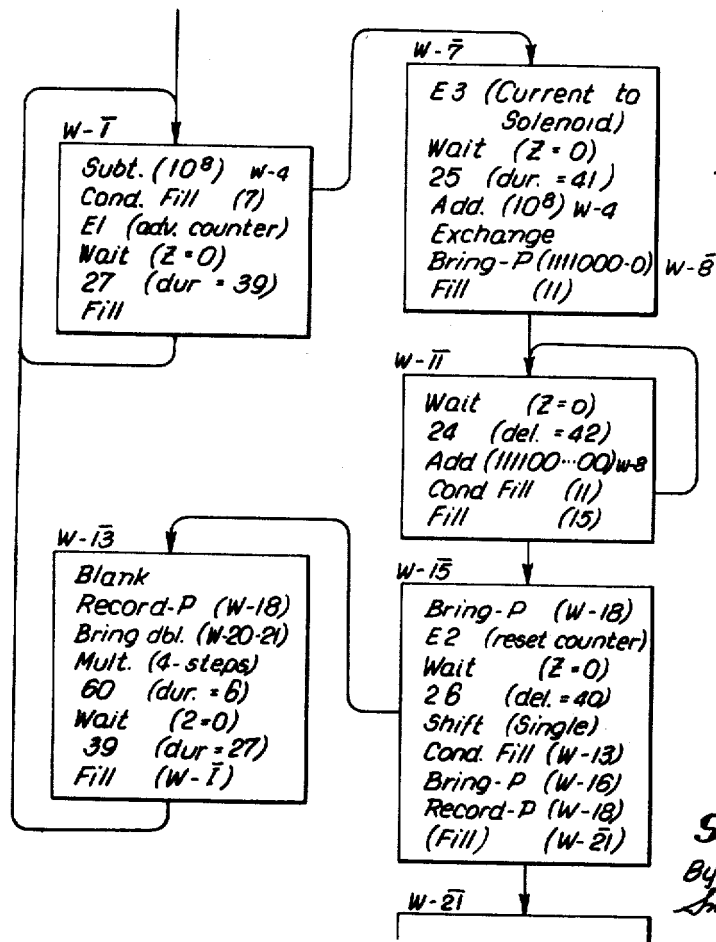 W-1̄
Subt. (10⁸) W-4
Cond. Fill (7)
E1 (adv. counter)
Wait (Z=0)
27 (dur = 39)
Fill
W-7̄
E3 (Current to
Solenoid)
Wait (Z=0)
25 (dur. = 41)
Add. (10⁸) W-4
Exchange
Bring-P (1111000-0) W-8̄
Fill (11)
W-1̄1̄
Wait (Z=0)
24 (del. = 42)
Add (111100···00) W-8
Cond Fill (11)
Fill (15)
W-1̄3̄
Blank
Record-P (W-18)
Bring dbl. (W-20-21)
Mult. (4-steps)
60 (dur. = 6)
Wait (2=0)
39 (dur = 27)
Fill (W-1̄)
W-1̄5̄
Bring-P (W-18)
E2 (reset counter)
Wait (Z=0)
26 (del. = 40)
Shift (Single)
Cond. Fill (W-13)
Bring-P (W-16)
Record-P (W-18)
(Fill) (W-2̄1̄)
W-2̄1̄
By